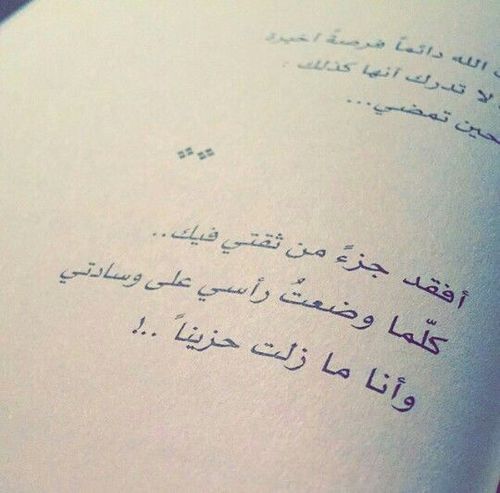 الله دائماً فرصةً أخيرة
لا تدرك أنها كذلك :
حين تمضي...
أفقد جزءً من ثقتي فيك..
كلّما وضعتُ رأسي على وسادتي
وأنا ما زلت حزيناً ..!